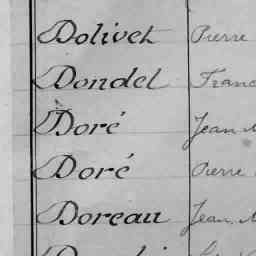 Dolivet Pierre
Dondel Franc
Doré Jean M
Doré Pierre
Doreau Jean M